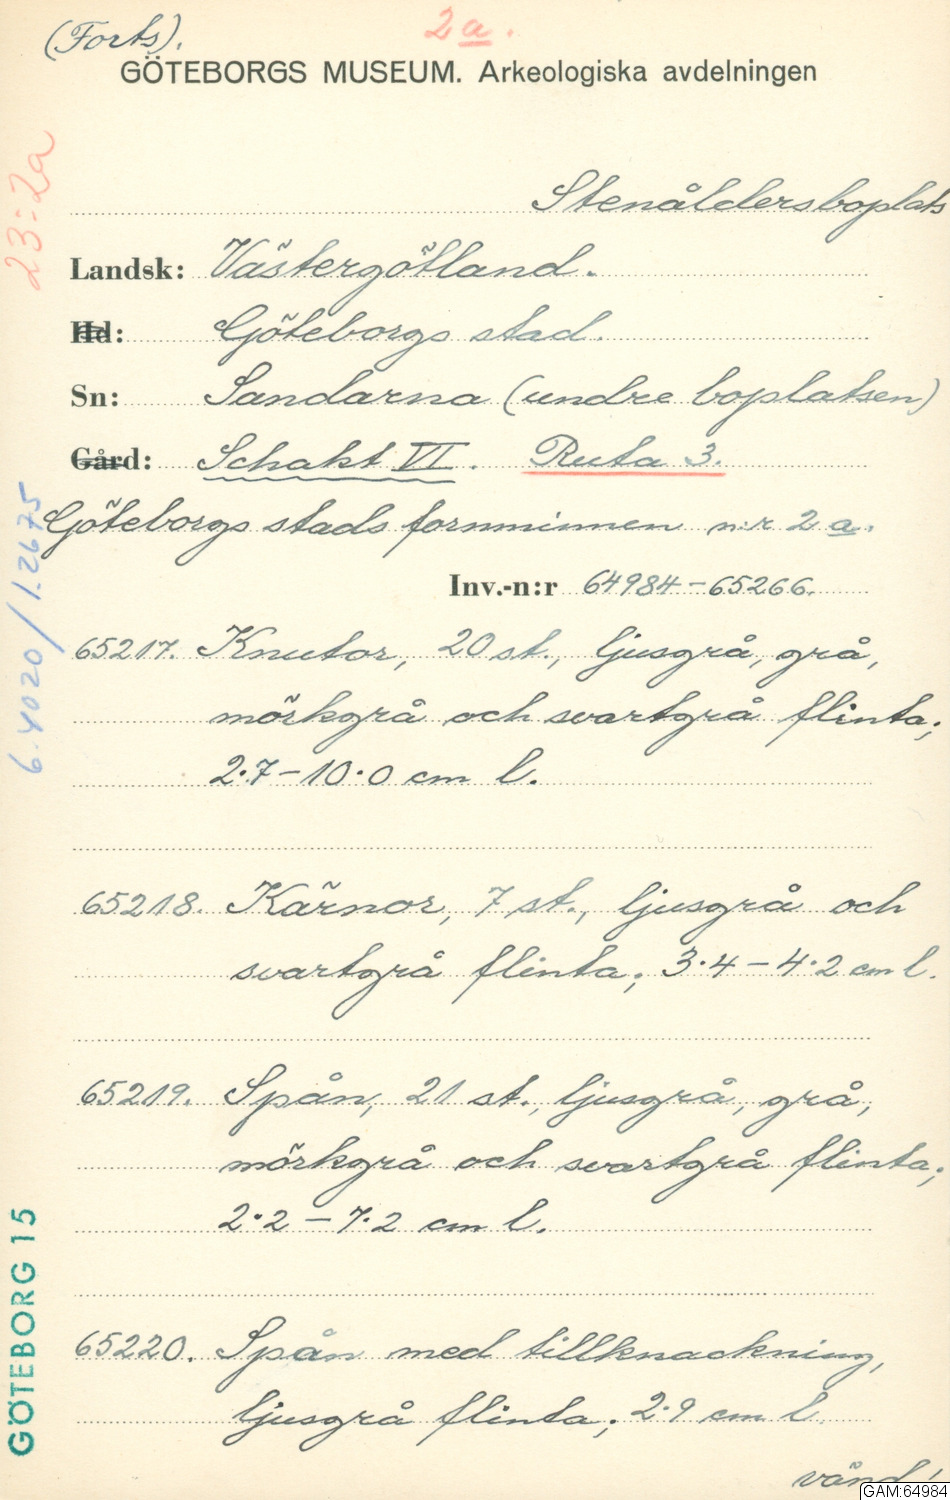 (Forts).
2a.
GÖTEBORGS MUSEUM. Arkeologiska avdelningen
23:2a
Stenåldersboplats
Landsk: Västergötland.
Hd: Göteborgs stad.
Sn: Sandarna (undre boplatsen)
Gård: Schakt VI. Ruta 3.
Göteborgs stads fornminnen n:r 2 a.
Inv.-n:r 64984-65266.
6.4020/1.2675
65217. Knutor, 20 st., ljusgrå, grå,
mörkgrå och svartgrå flinta;
2·7-10·0 cm l.
65218. Kärnor, 7 st., ljusgrå och
svartgrå flinta; 3·4-4·2 cm l.
65219. Spån, 21 st., ljusgrå, grå,
mörkgrå och svartgrå flinta;
2·2-7·2 cm l.
GÖTEBORG 15
65220. Spån med tillknackning,
ljusgrå flinta; 2·9 cm l.
vänd!
GAM:64984